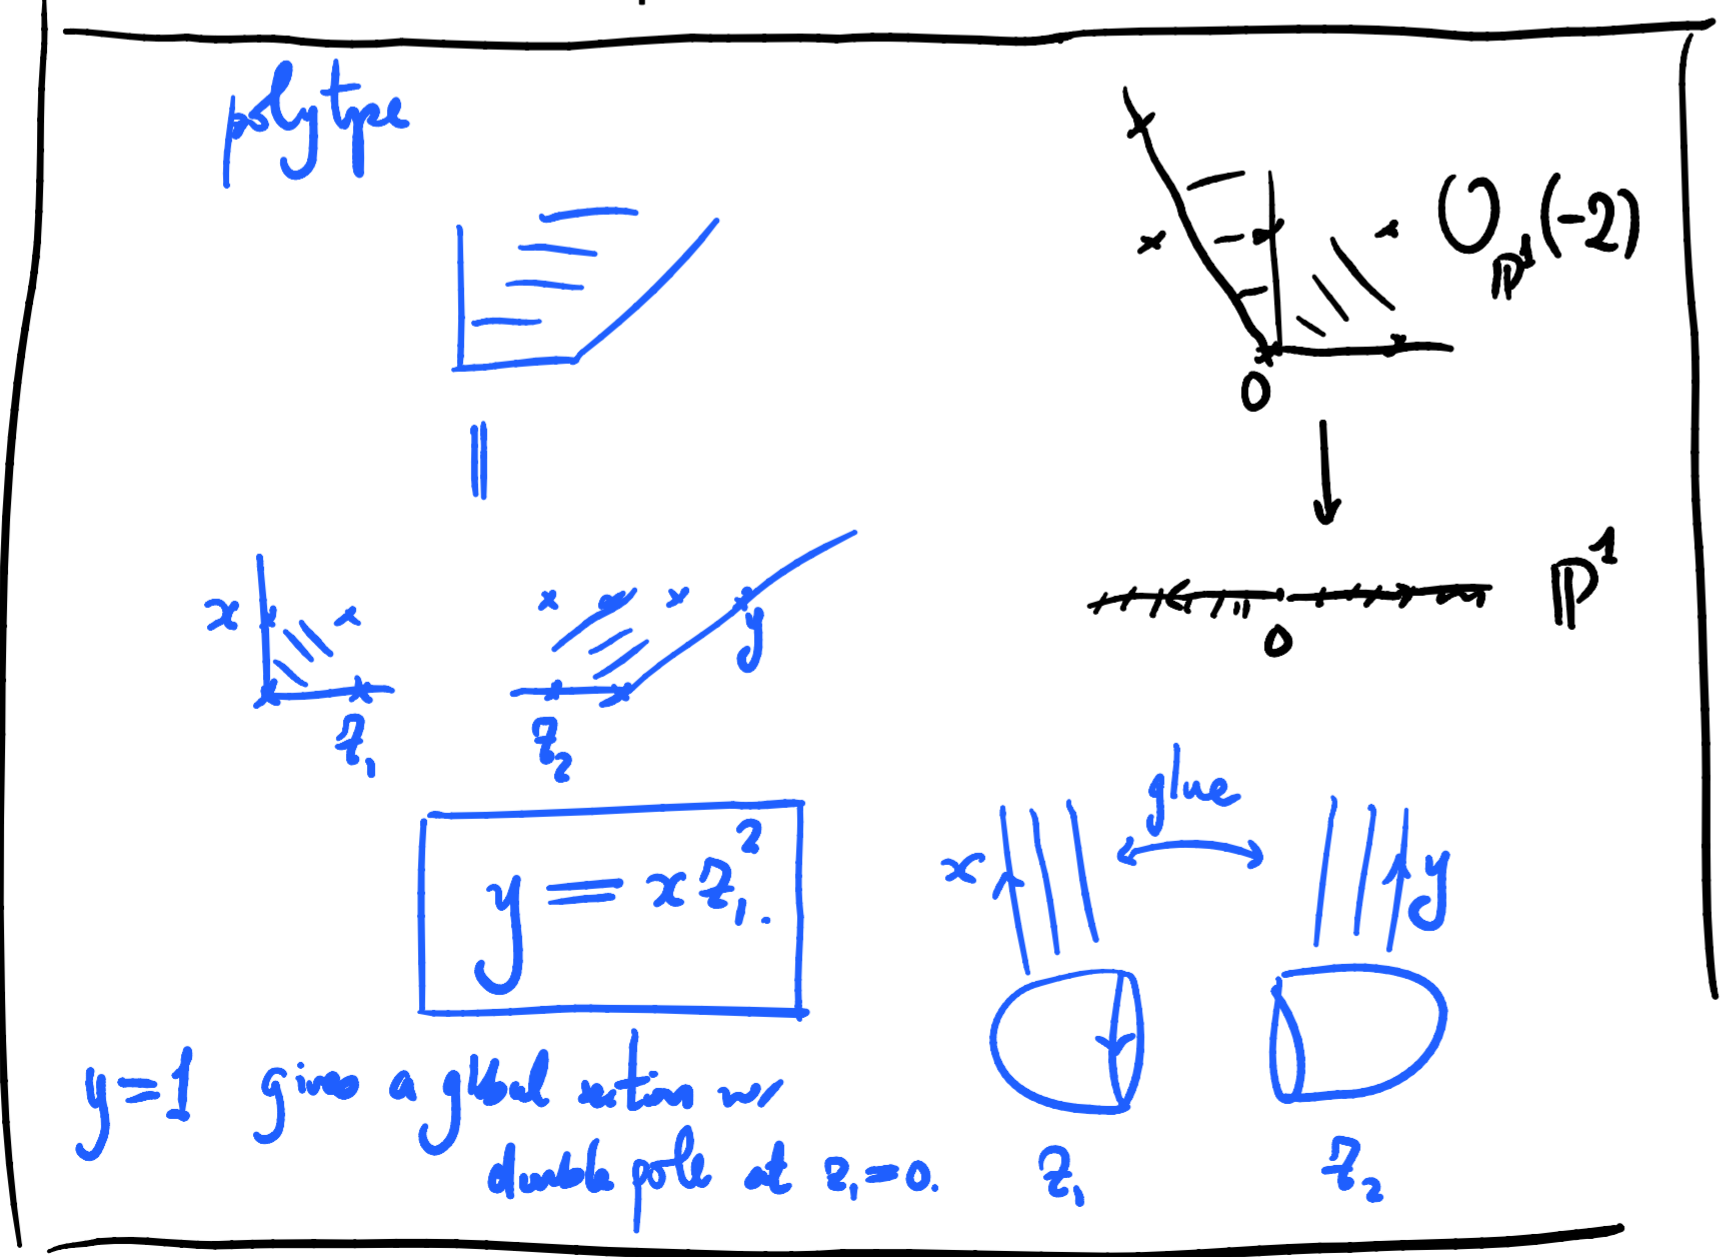 polytype
O_{P^1}(-2)
0
P^1
0
x
z_1
z_2
y
y = x z_1^2.
glue
x
y
z_1
z_2
y=1 gives a global section w/
double pole at z_1=0.